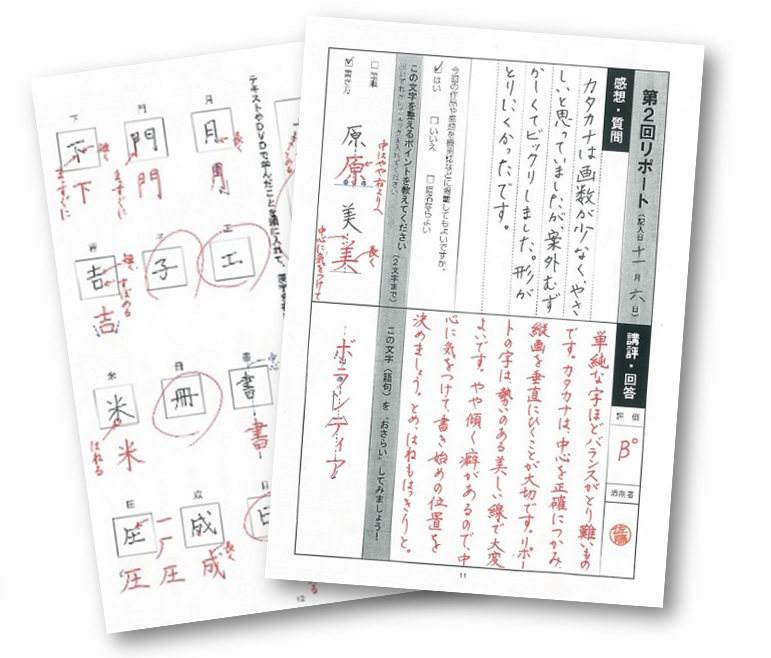 第2回リポート（記入日 十一月 六日）
感想・質問
カタカナは画数が少なくやさ
しいと思っていましたが、案外むず
かしくてビックリしました。形が
とりにくかったです。
今回の作品や感想を機関誌などに掲載してもよいですか。
はい
いいえ
匿名ならよい
この文字を整えるポイントを教えてください（2文字まで）
※いずれかにチェックを入れてください
筆順
書き方
原
原
中はやや右よりへ
美
美
長く
中心に気をつけて
講評・回答
評価
B°
添削者
佐藤
単純な字ほどバランスがとり難いもの
です。カタカナは、中心を正確につかみ、
縦画を垂直にひくことが大切です。リポー
トの字は、勢いのある美しい線で大変
よいです。やや傾く癖があるので、中
心に気をつけて、書き始めの位置を
決めましょう。とめ、はねもはっきりと。
この文字（語句）を“おさらい”してみましょう！
ボランティア
11
テキストやDVDで学んだことを頭に入れて、
月
月
長く
月
門
門
まっすぐに
門
下
下
短く
まっすぐに
下
正
工
子
子
吉
吉
短く
すぼめる
吉
書
書
中心
書
冊
冊
米
米
はねる
米
成
成
長く
成
圧
圧
圧
圧
12